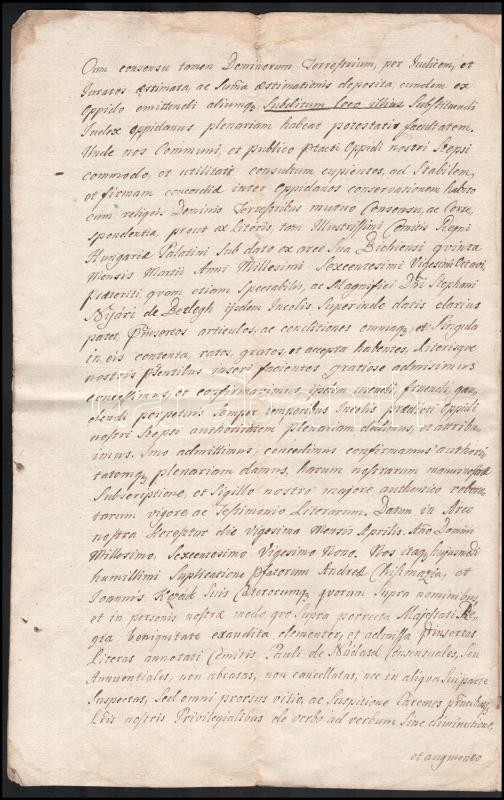 Cum consensu tamen Dominorum Terrestrium, per Judicem, et
Juratos æstimata, ac Suma æstimationis deposita, eundem ex
Oppido emittendi aliumq, Subditum loco illius Substituendi
Judex oppidanus plenariam habeat potestatis facultatem.
Unde nos Communi, et publico Oppidi nostri Stepsi
commodo, et utilitati consultum cupientes, ad Stabilem,
et firmam concordiæ inter Oppidanos conservationem habito
cum reliquis Dominis Terrestribus mutuo Consensu, ac Corre,
spondentia, prout ex Literis, tam Illustrissimi Comitis Regni
Hungariæ Palatini sub dato ex arce Sua quinta
Mensis Martii Anni Millesimi Sexcentesimi Vigesimi Octavi
præteriti, quam etiam Spectabilis, ac Magnifici Dni Stephani
Nyári de Bedegh ijsdem Incolis, superinde datis clarius
patet, articulos, ac conditiones omnes, et Singula
in eis contenta, rata, grata, et accepta habentes, Literisque
nostris inseri facientes gratiose admisimus
concessimus, et confirmavimus, ijsdem utendi, fruendi, gau,
dendi perpetuis Semper temporibus Incolis prædicti Oppidi
nostri Stepsi authoritatem plenariam dedimus, et attribu,
imus. Imo admittimus, concedimus confirmamus authori,
tatemq, plenariam damus, harum nostrarum manus nostræ
Subscriptione, et Sigillo nostro majore authentico robora,
tarum vigore ac Testimonio Literarum. Datum in Arce
nostra die Vigesima Mensis Aprilis. Año Domini
Millesimo, Sexcentesimo Vigesimo Nono. Nos itaq, hujusmodi
humillimi Supplicatione Andreæ et
Joannis Suis Cæterorumq, quorum Supra nominibus,
et in personis nostræ modo, quo Supra porrecta Majestati Re,
gia benignitate exaudita clementer, et admissa
Literas annotati Comitis Pauli de Nadasd Consensuales, Seu
Annuentiales, non abrasas, non cancellatas, nec in aliqua Sui parte
Suspectas, Sed omni prorsus vitio, ac Suspitione Carentes
nostris Privilegialibus de verbo ad verbum Sine diminutione,
et augmento